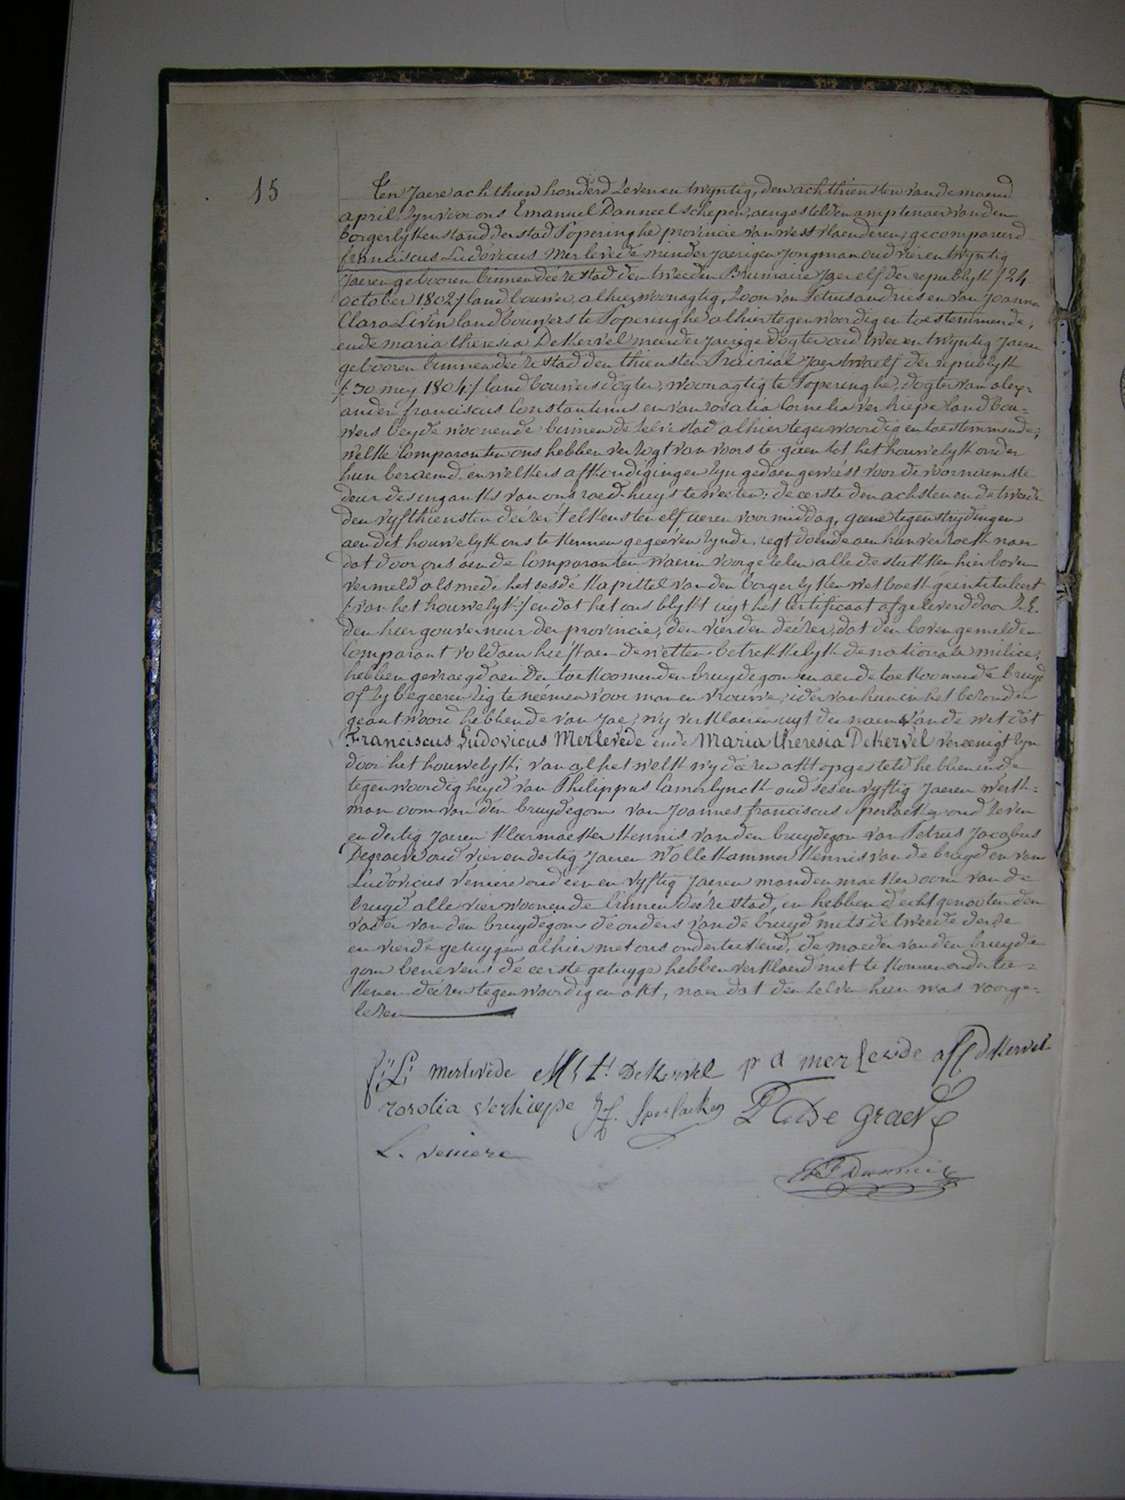 15
Ten Jaere achthien honderd Seven en twyntig, den achthiensten van de maend
april, zyn voor ons Emanuel Danneel schepen, aengestelden amptenaer van den
borgerlyken stand der stad Poperinghe, provincie van west vlaenderen, gecompareerd
franciscus Ludovicus Merlevede minder jaerigen Jongman oud vier en twyntig
Jaeren gebooren binnen deéze stad den tweeden Brumaire Jaer elf der republyk /24
october 1802/ land bouwer, alhier woonagtig, zoon van Petrus andries en van Joanna
Clara Livin landbouwers te Poperinghe alhier tegenwoordig en toestemmende,
ende maria theresia DeKervel minder jaerige dogter oud twee en twyntig Jaeren
gebooren binnen deéze stad den thiensten Prairial Jaer twaelf der republyk
/30 mey 1804:/ land bouwers dogter, woonagtig te Poperinghe, dogter van alex-
ander franciscus Constantinus en van rosalia Cornelia verhiepe land bou-
wers beyde woonende binnen de zelve stad alhier tegenwoordig en toestemmende;
welke Comparanten ons hebben verzogt van voors te gaen tot het houwelyk onder
hun beraemd, en welkers afkondigingen zyn gedaen geweest voor de voornaemste
deur des ingank's van ons raed-huys te weeten: de eerste den achsten en de tweede
den vyfthiensten deézer, telkens ten elf ueren voormiddag, geene tegenstrydingen
aen dit houwelyk ons te kennen gegeéven zynde, regt doende aen hun verzoek naer
dat door ons aen de Comparanten waeren voorgelezen alle de stukken hier boven
vermeld als mede het zesde kapittel van den borgerlyken wetboek geïntituleert
/:van het houwelyk:/ en dat het ons blykt uyt het Certificaet afgeleverd door Z.E.
den heer gouverneur der provincie, den vierden deézer, dat den boven gemelden
Comparant voldaen heeft aen de wetten betrekkelyk de nationale milicie,
hebben gevraegd aen den toekoomenden bruydegom en aen de toekoomende bruyd
of zy begeeren zig te neemen voor man en vrouwe, ider van hun in het bezonder
geantwoord hebbende van Jae, wy verklaeren uyt den naem van de wet dat
Franciscus Ludovicus Merlevede ende Maria theresia DeKervel vereenigt zyn
door het houwelyk, van al het welk wy deézen akt opgesteld hebben in de
tegenwoordigheyd van Philippus Camerlynck oud ses en vyftig Jaeren werk-
man oom van den bruydegom van Joannes franciscus Sperlaeken oud zeven
en dertig Jaeren kleermaeker kennis van den bruydegom van Petrus Jacobus
Degraeve oud vier en dertig Jaeren Wollekammer kennis van de bruyd en van
Ludovicus Veniere oud een en vyftig Jaeren mandenmaeker oom van de
bruyd alle vier woonende binnen deéze stad, en hebben d'echtgenooten den
vader van den bruydegom d'eouders van de bruyd mits de tweede derde
en vierde getuygen alhier met ons onderteekend, de moeder van den bruyde
gom benevens de eerste getuyge hebben verklaerd niet te konnen onderteé-
kenen deézen tegenwoordigen akt, naer dat den zelven hun was voorge-
lezen
f: L: merlevede M: t: DeKervel p a merlevede a f C deKervel
rosalia verhiepe J f. Sperlaeken P J De graeve
L. veniere